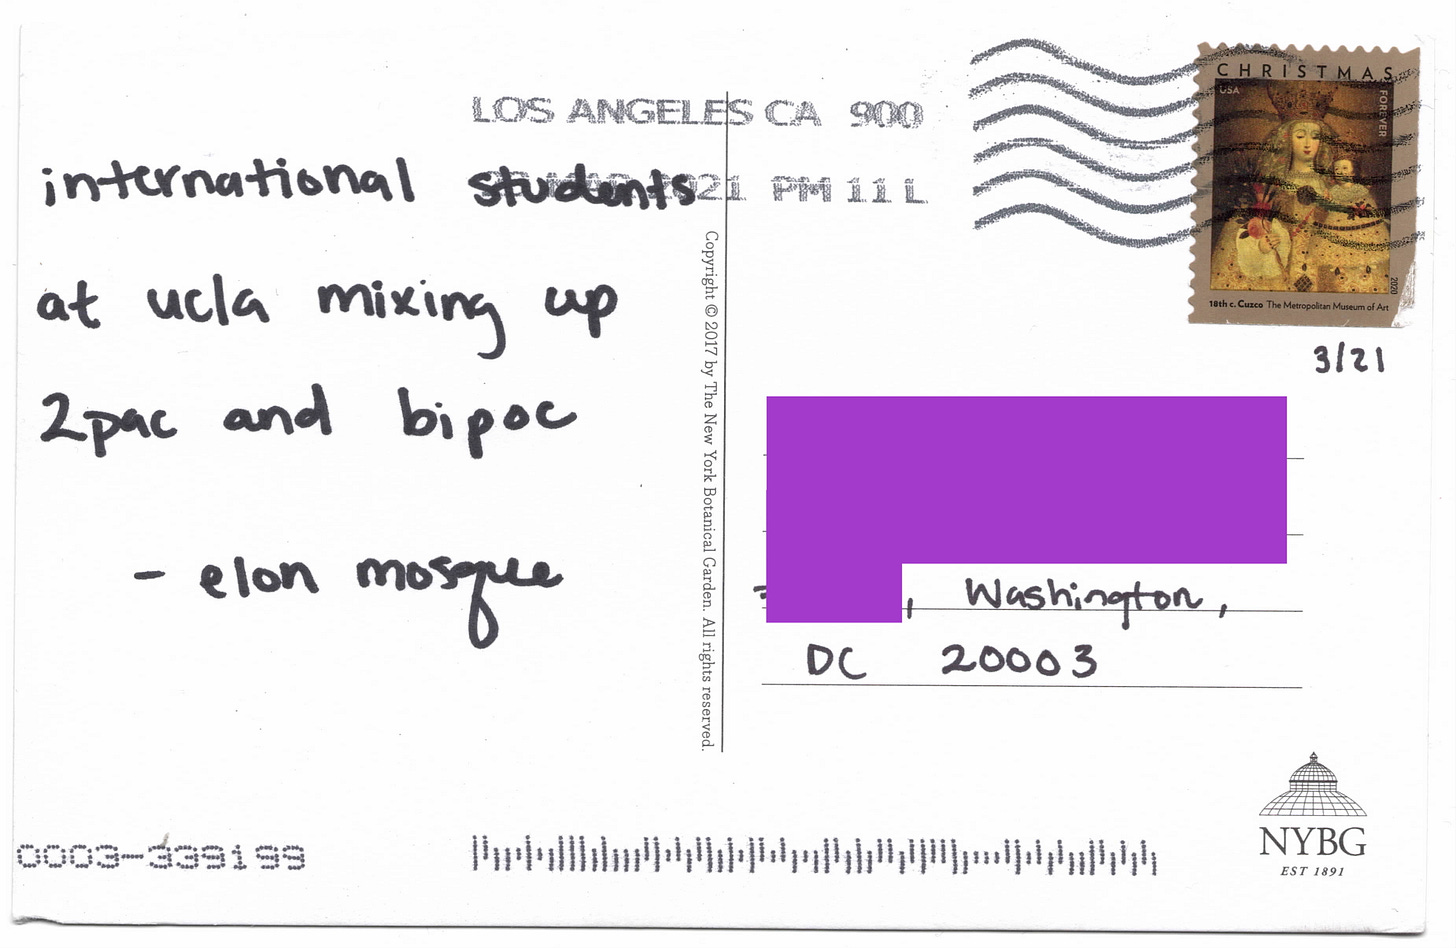 LOS ANGELES CA 900
2021 PM 11 L
CHRISTMAS
USA
FOREVER
2020
18th c. Cuzco The Metropolitan Museum of Art
3/21
international students
at ucla mixing up
2pac and bipoc
- elon mosque
Copyright © 2017 by The New York Botanical Garden. All rights reserved.
, Washington,
DC 20003
NYBG
EST 1891
0003-339199